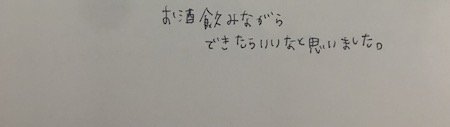 お酒飲みながら
できたらいいなと思いました。